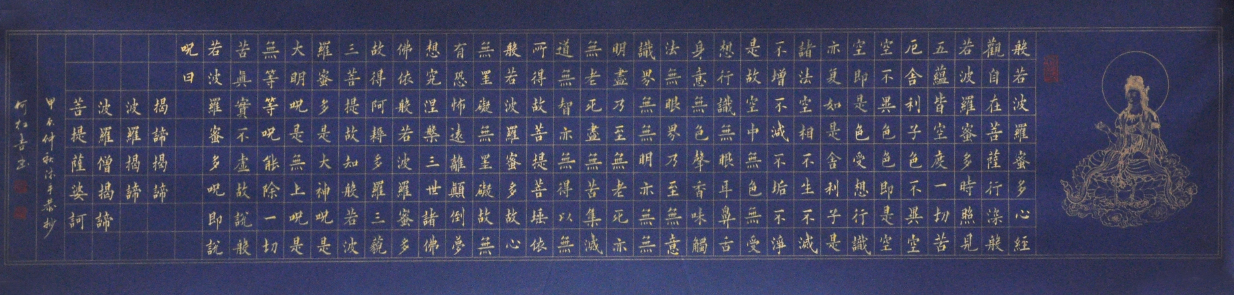 般若波羅蜜多心經
觀自在菩薩行深般
若波羅蜜多時照見
五蘊皆空度一切苦
厄舍利子色不異空
空不異色色即是空
空即是色受想行識
亦復如是舍利子是
諸法空相不生不滅
不增不減不垢不淨
是故空中無色無受
想行識無眼耳鼻舌
身意無色聲香味觸
法無眼界乃至無意
識界無無明亦無無
明盡乃至無老死亦
無老死盡無苦集滅
道無智亦無得以無
所得故菩提薩埵依
般若波羅蜜多故心
無罣礙無罣礙故無
有恐怖遠離顛倒夢
想究涅槃三世諸佛
佛依般若波羅蜜多
故得阿耨多羅三藐
三菩提故知般若波
羅蜜多是大神呪是
大明呪是無上呪是
無等等呪能除一切
苦真實不虛故說般
若波羅蜜多呪即說
呪曰
揭諦揭諦
波羅揭諦
波羅僧揭諦
菩提薩婆訶
甲午仲秋恭抄